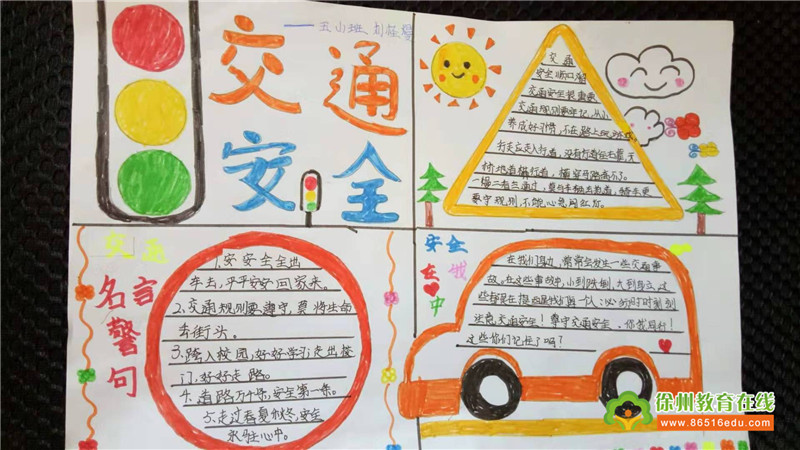 交通
安全
五小班
交通
安全顺口溜
交通安全很重要
交通规则要牢记,从小
养成好习惯,不在路上玩游戏,
行走应走人行道,没有行道往右靠,天
桥地道横行道,横穿马路离不了。
遵守规则
交通
名言
警句
1.安安全全出
车去,平平安安回家来。
2.交通规则要遵守,莫将生命
去街头。
3.踏入校园,好好学习走出校
门,好好走路。
4.道路万千条,安全第一条。
5.走过春夏秋冬,安全
永驻心中。
安全
在我
中
在我们身边,常常会发生一些交通事
故。在这些事故中,小到跌倒,大到
注意交通安全!尊守交通安全、你我同行!
这些你们记住了吗?
徐州教育在线
www.86516edu.com